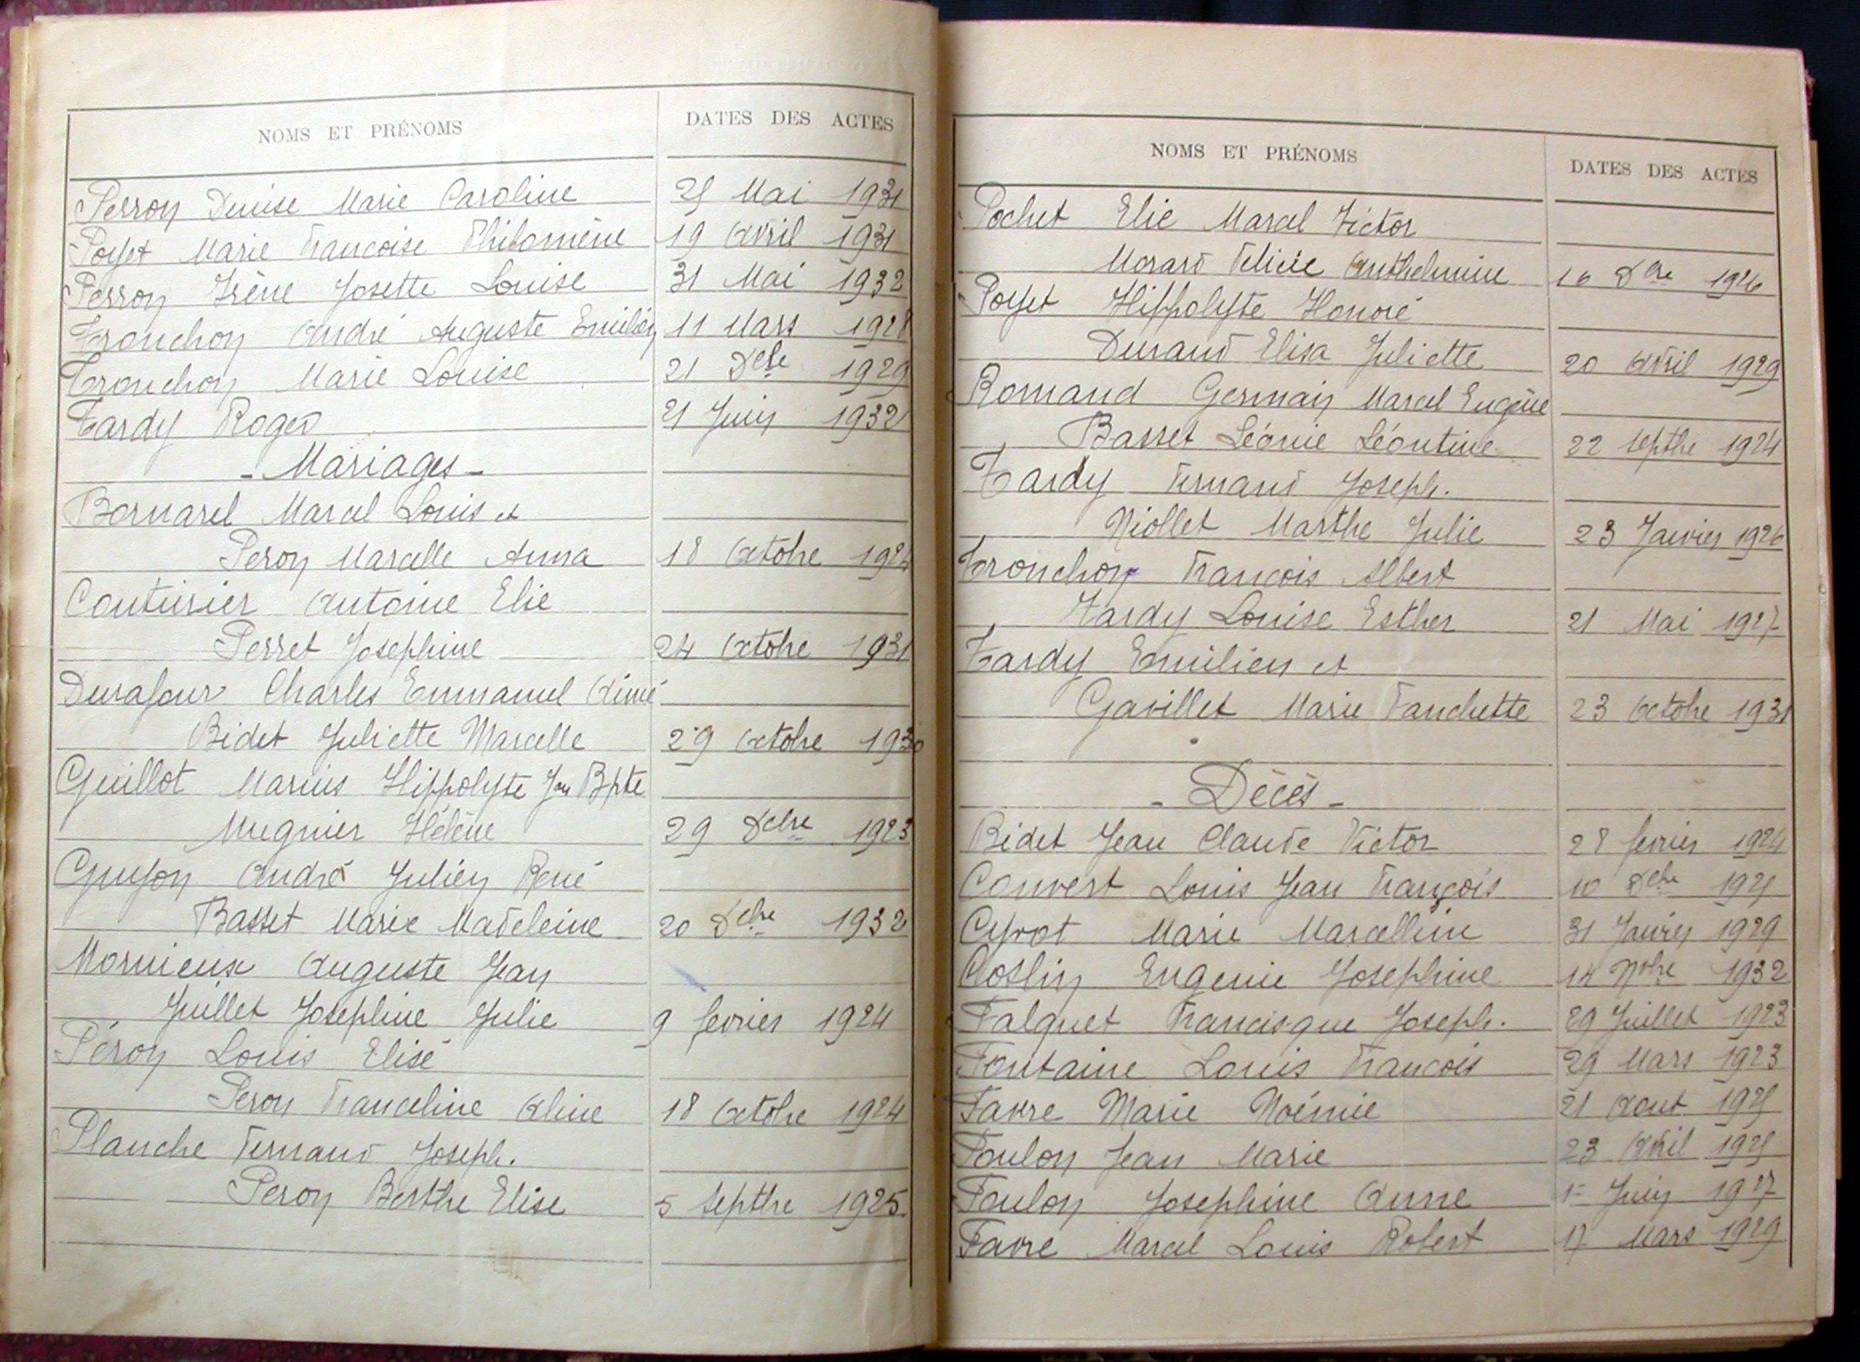 NOMS ET PRÉNOMS DATES DES ACTES
Perron Denise Marie Caroline 25 Mai 1931
Poyet Marie Francoise Philomène 19 avril 1931
Perron Irène Josette Louise 31 Mai 1932
Tronchon André Auguste Emilien 11 Mars 1928
Tronchon Marie Louise 21 Dcbre 1929
Tardy Roger 21 Juin 1932
- Mariages -
Bornarel Marcel Louis et
Peron Marcelle Anna 18 Octobre 1924
Couturier Antoine Elie
Perret Josephine 24 Octobre 1931
Durafour Charles Emmanuel Aimé
Bidet Juliette Marcelle 29 Octobre 1930
Guillot Marius Hippolyte Jn Bpte
Mugnier Hélène 29 Dcbre 1923
Guyon André Julien René
Basset Marie Madeleine 20 Dcbre 1932
Mornieux Auguste Jean
Juillet Joséphine Julie 9 fevrier 1924
Péron Louis Elisé
Peron Franceline Aline 18 Octobre 1924
Planche Fernand Joseph.
Peron Berthe Elise 5 Septbre 1925.
NOMS ET PRÉNOMS DATES DES ACTES
Pochet Elie Marcel Victor
Morard Félicie Anthelmine 16 Dcre 1926
Poyet Hippolyte Honoré
Durand Elisa Juliette 20 avril 1929
Romand Germain Marcel Eugène
Basset Léonie Léontine 22 septbre 1924
Tardy Fernand Joseph.
Niollet Marthe Julie 23 Janvier 1926
Tronchon Francois Albert
Tardy Louise Esther 21 Mai 1927
Tardy Emilien et
Gavillet Marie Fanchette 23 Octobre 1931
- Décès -
Bidet Jean Claude Victor 28 fevrier 1924
Convert Louis Jean François 10 Dcbre 1925
Cyvot Marie Marcelline 31 Janvier 1929
Coslin Eugenie Josephine 14 Nobre 1932
Falquet Francisque Joseph. 29 Juillet 1923
Fontaine Louis Francois 29 Mars 1923
Favre Marie Noémie 21 Aout 1925
Foulon Jean Marie 23 Avril 1925
Foulon Josephine Anne 1= Juin 1927
Favre Marcel Louis Robert 17 Mars 1929